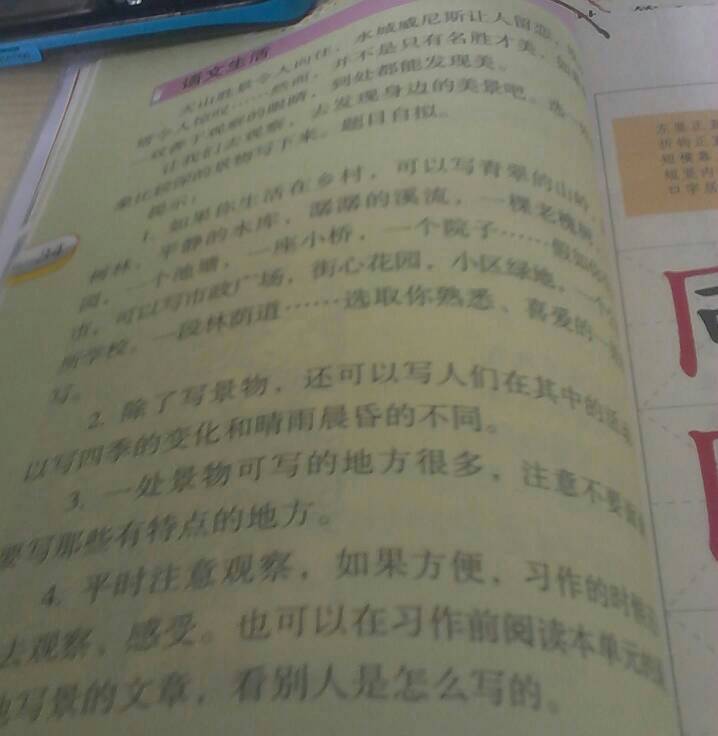 语文生活
天山胜景令人向往，水城威尼斯让人留恋，
塔令人惊叹……然而，并不是只有名胜才美，如果
一双善于观察的眼睛，到处都能发现美。
让我们去观察，去发现身边的美景吧。选一
象比较深的景物写下来。题目自拟。
提示：
1. 如果你生活在乡村，可以写青翠的山岭，
树林，平静的水库，潺潺的溪流，一棵老槐树，
园，一个池塘，一座小桥，一个院子……假如你
市，可以写市政广场，街心花园，小区绿地，一个
所学校，一段林荫道……选取你熟悉、喜爱的一
写。
2. 除了写景物，还可以写人们在其中的活动
以写四季的变化和晴雨晨昏的不同。
3. 一处景物可写的地方很多，注意不要
要写那些有特点的地方。
4. 平时注意观察，如果方便，习作的时候
去观察、感受。也可以在习作前阅读本单元的
他写景的文章，看别人是怎么写的。
34
左竖正
折钩正
短横靠
短竖内
口字居